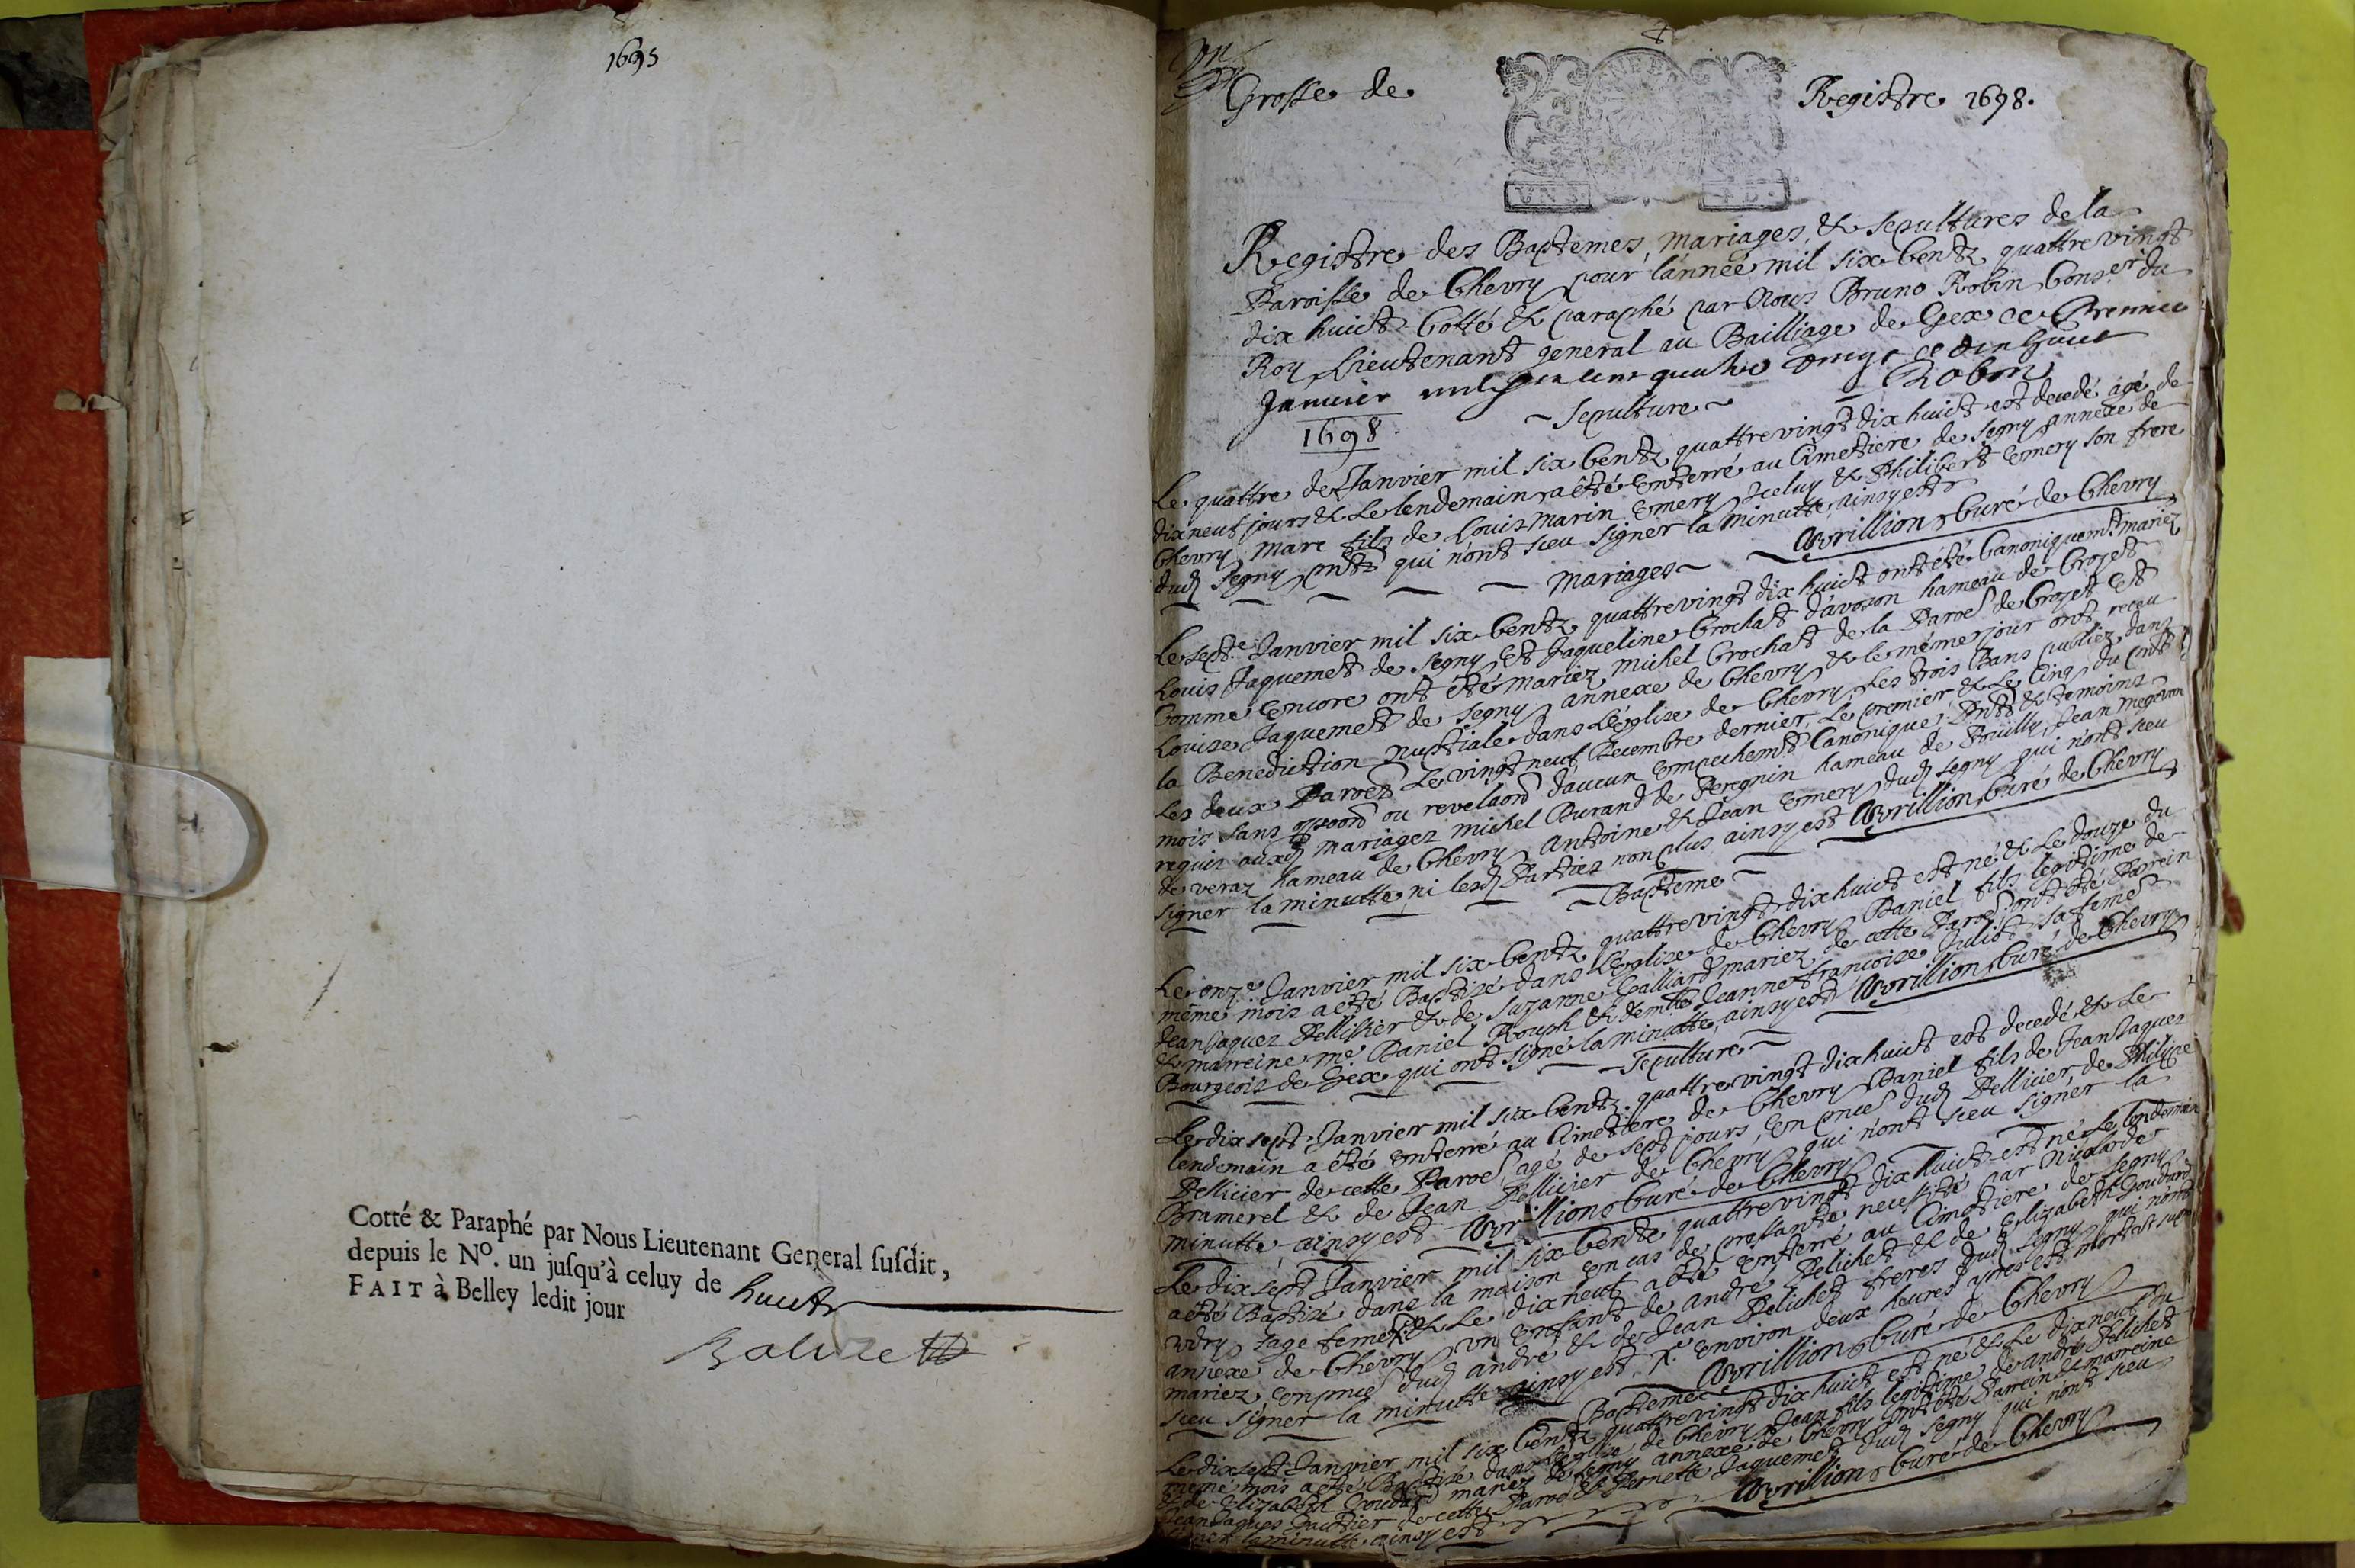 1695
Cotté & Paraphé par Nous Lieutenant General ſuſdit,
depuis le No. un juſqu'à celuy de huict
FAIT à Belley ledit jour
Grosse de Registre 1698.
UN S
Registre des Baptemes, mariages, & sepultures de la
Paroisse de Chevry pour l'année mil six Centz quattre vingt
dix huict Cotté & paraphé par Nous Bruno Robin Conser du
Roy Lieutenant general au Bailliage de Gex ce Premier
Janvier mil six cent quatre vingt et dix huict
Robin
1698. ~ Sepulture ~
Le quattre de Janvier mil six Centz quattre vingt dix huict est decedé agé de
dix neuf jours & Le lendemain a été enterré au Cimetiere de Segny annexe de
Chevry marc fils de Louis marin Emery Iceluy & Philibert Emery son frere
dud Segny pnts qui n'ont sceu signer la minutte, ainsy est
Avrillion Curé de Chevry
~ Mariages ~
Le septe Janvier mil six Centz quattre vingt dix huict ont été Canoniquemt mariez
Louis Jaquemet de Segny Et Jaqueline Crochat d'avoson hameau de Crozet
Comme encore ont été mariez michel Crochat de la Paroe de Crozet Et
Louise Jaquemet de Segny annexe de Chevry & le même jour ont receu
la Benediction nuptiale dans L'église de Chevry Les trois Bans publiez dans
Les deux Paroes Le vingt neuf Decembre dernier, Le premier & Le Cinq du pnt
mois sans oppoon ou revelaon d'aucun empechemt Canonique, Pnts & temoins
requis auxd mariages michel Durand de Peregnin hameau de Pouilly, Jean megevan
de veraz hameau de Chevry Antoine & Jean Emery dud Segny qui n'ont sceu
signer la minutte ni lesd Parties non plus ainsy est Avrillion Curé de Chevry
~ Bapteme ~
Le onze Janvier mil six Centz quattre vingt dix huict est né & Le douze du
même mois a été Baptizé dans L'Eglise de Chevry Daniel fils legitime de
Jean Jaques Pellissier & de Suzanne Galliard mariez de cette Paroe ont été Parrein
& marreine me Daniel Rouph & demlle Jeanne francoise Juliot sa feme
Bourgeois de Gex qui ont signé la minutte ainsy est Avrillion Curé de Chevry
~ Sepulture ~
Le dix sept Janvier mil six Centz quattre vingt dix huict est decedé & Le
lendemain a été enterré au Cimetiere de Chevry Daniel fils de Jean Jaques
Pellicier de cette Paroe agé de sept jours, en pnce dud Pellicier, de Philipe
Bramerel & de Jean Pellicier de Chevry qui n'ont sceu signer la
minutte ainsy est Avrillion Curé de Chevry
Le dix sept Janvier mil six Centz quattre vingt dix huict est né Le lendemain
a été Baptizé dans la maison en cas de pressante necessité par Nicolarde
sage feme & Le dix neuf a été enterré au Cimetiere de Segny
annexe de Chevry un enfant de andré Pelichet & de Elizabeth Goudard
mariez, en pnce dud andré & de Jean Pelichet freres dud Segny qui n'ont
sceu signer la minutte ainsy est environ deux heures apres est mort
Avrillion Curé de Chevry
~ Bapteme
Le dix sept Janvier mil six Centz quattre vingt dix huict est né & Le dix neuf du
meme mois a été Baptizé dans L'église de Chevry Jean fils legitime de andré Pelichet
& de Elizabeth Goudard mariez de Segny annexe de Chevry ont été Parrein & marreine
Jean Jaques Gautier de cette Paroe & Pernette Jaquemet dud Segny qui n'ont sceu
signer la minutte ainsy est Avrillion Curé de Chevry